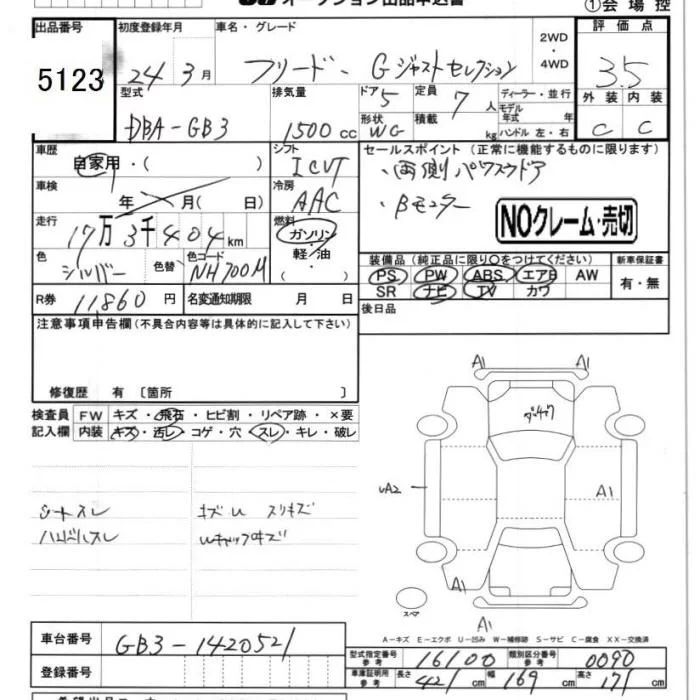 オークション出品申込書
①会場控
出品番号 5123
初度登録年月 24年3月
車名・グレード フリード、Gジャストセレクション
2WD・4WD
評価点 3.5
外装 C 内装 C
型式 DBA-GB3
排気量 1500cc
ドア 5
形状 WG
定員 7人
積載 kg
ディーラー・並行
モデル年式 年
ハンドル 左・右
車歴 自家用・( )
シフト ICVT
車検 年 月( 日)
冷房 AAC
走行 17万3千404km
燃料 ガソリン・軽油・( )
色 シルバー
色替
色コード NH700M
R券 11860円
名変通知期限 月 日
セールスポイント (正常に機能するものに限ります)
・両側パワスラドア
・Bモニター
NOクレーム・売切
装備品(純正品に限り○をつけてください)
PS PW ABS エアB AW
SR ナビ TV カワ
新車保証書 有・無
後日品
注意事項申告欄(不具合内容等は具体的に記入して下さい)
修復歴 有 〔箇所 〕
検査員記入欄
FW キズ・飛石・ヒビ割・リペア跡・×要
内装 キズ・汚レ・コゲ・穴・スレ・キレ・破レ
シートスレ
キズU スリキズ
ハンドルスレ
A1 A1
UA2
A1
A1
スペア
A1
A-キズ E-エクボ U-凹み W-補修跡 S-サビ C-腐食 XX-交換済
車台番号 GB3-1420521
登録番号
型式指定番号 参考 16100
類別区分番号 参考 0090
車庫証明用 参考 長さ 421cm 幅 169cm 高さ 171cm